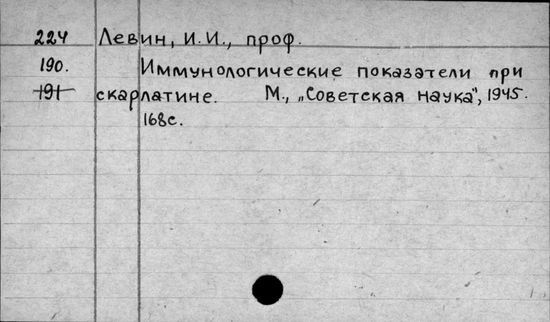 224 Левин, И.И., проф.
190. Иммунологические показатели при
191 скарлатине. М., „Советская наука", 1945.
168с.